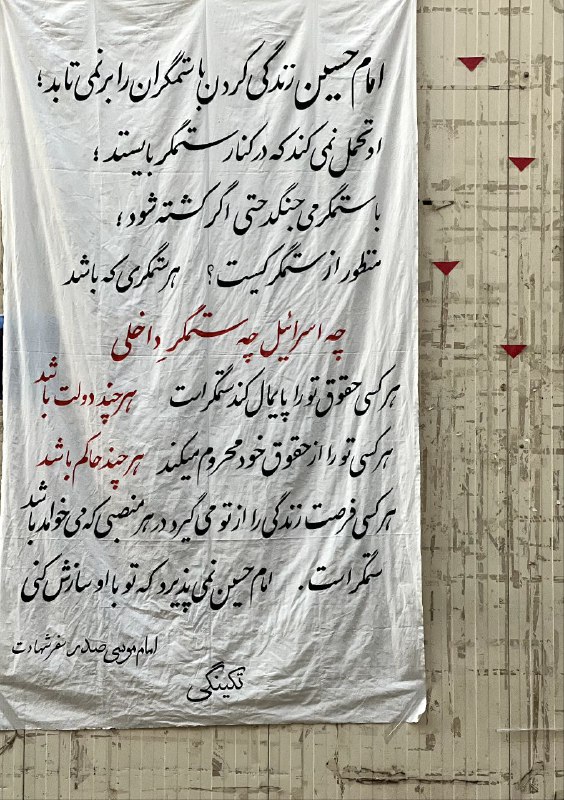 امام حسین زندگی کردن با ستمگران را بر نمی تابد؛
او تحمل نمی کند که در کنار ستمگر بایستد؛
با ستمگر می جنگد حتی اگر کشته شود؛
منظور از ستمگر کیست؟ هر ستمگری که باشد
چه اسرائیل چه ستمگرِ داخلی
هر کسی حقوق تو را پایمال کند ستمگر است هر چند دولت باشد
هر کسی تو را از حقوق خود محروم میکند هر چند حاکم باشد
هر کسی فرصت زندگی را از تو می گیرد در هر منصبی که می خواهد باشد
ستمگر است. امام حسین نمی پذیرد که تو با او سازش کنی
امام موسی صدر سفر شهادت
تکینگی